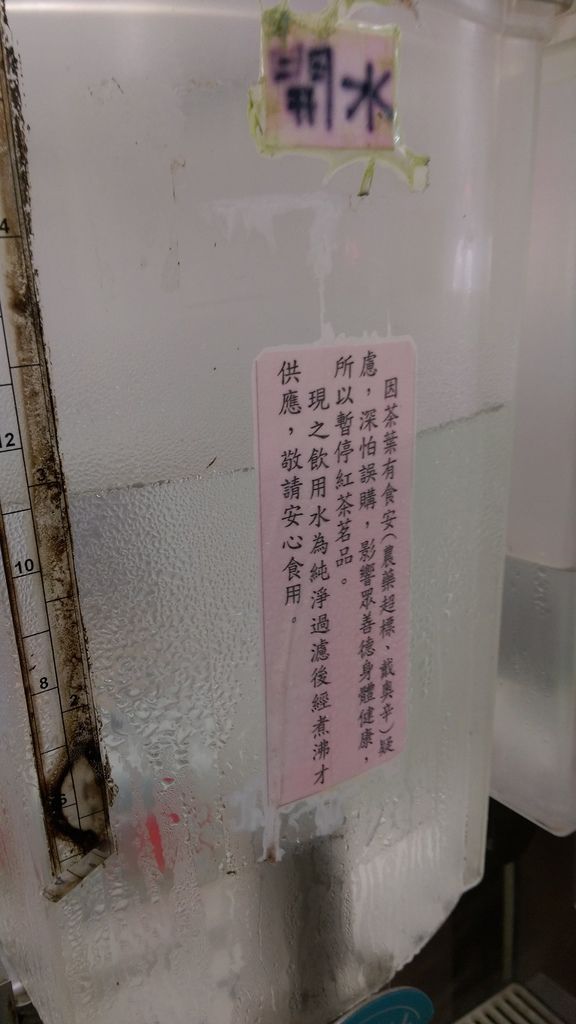 開水
因茶葉有食安(農藥超標、戴奧辛)疑
慮，深怕誤購，影響眾善德身體健康，
所以暫停紅茶茗品。
現之飲用水為純淨過濾後經煮沸才
供應，敬請安心食用。
4
12
3
10
8
2